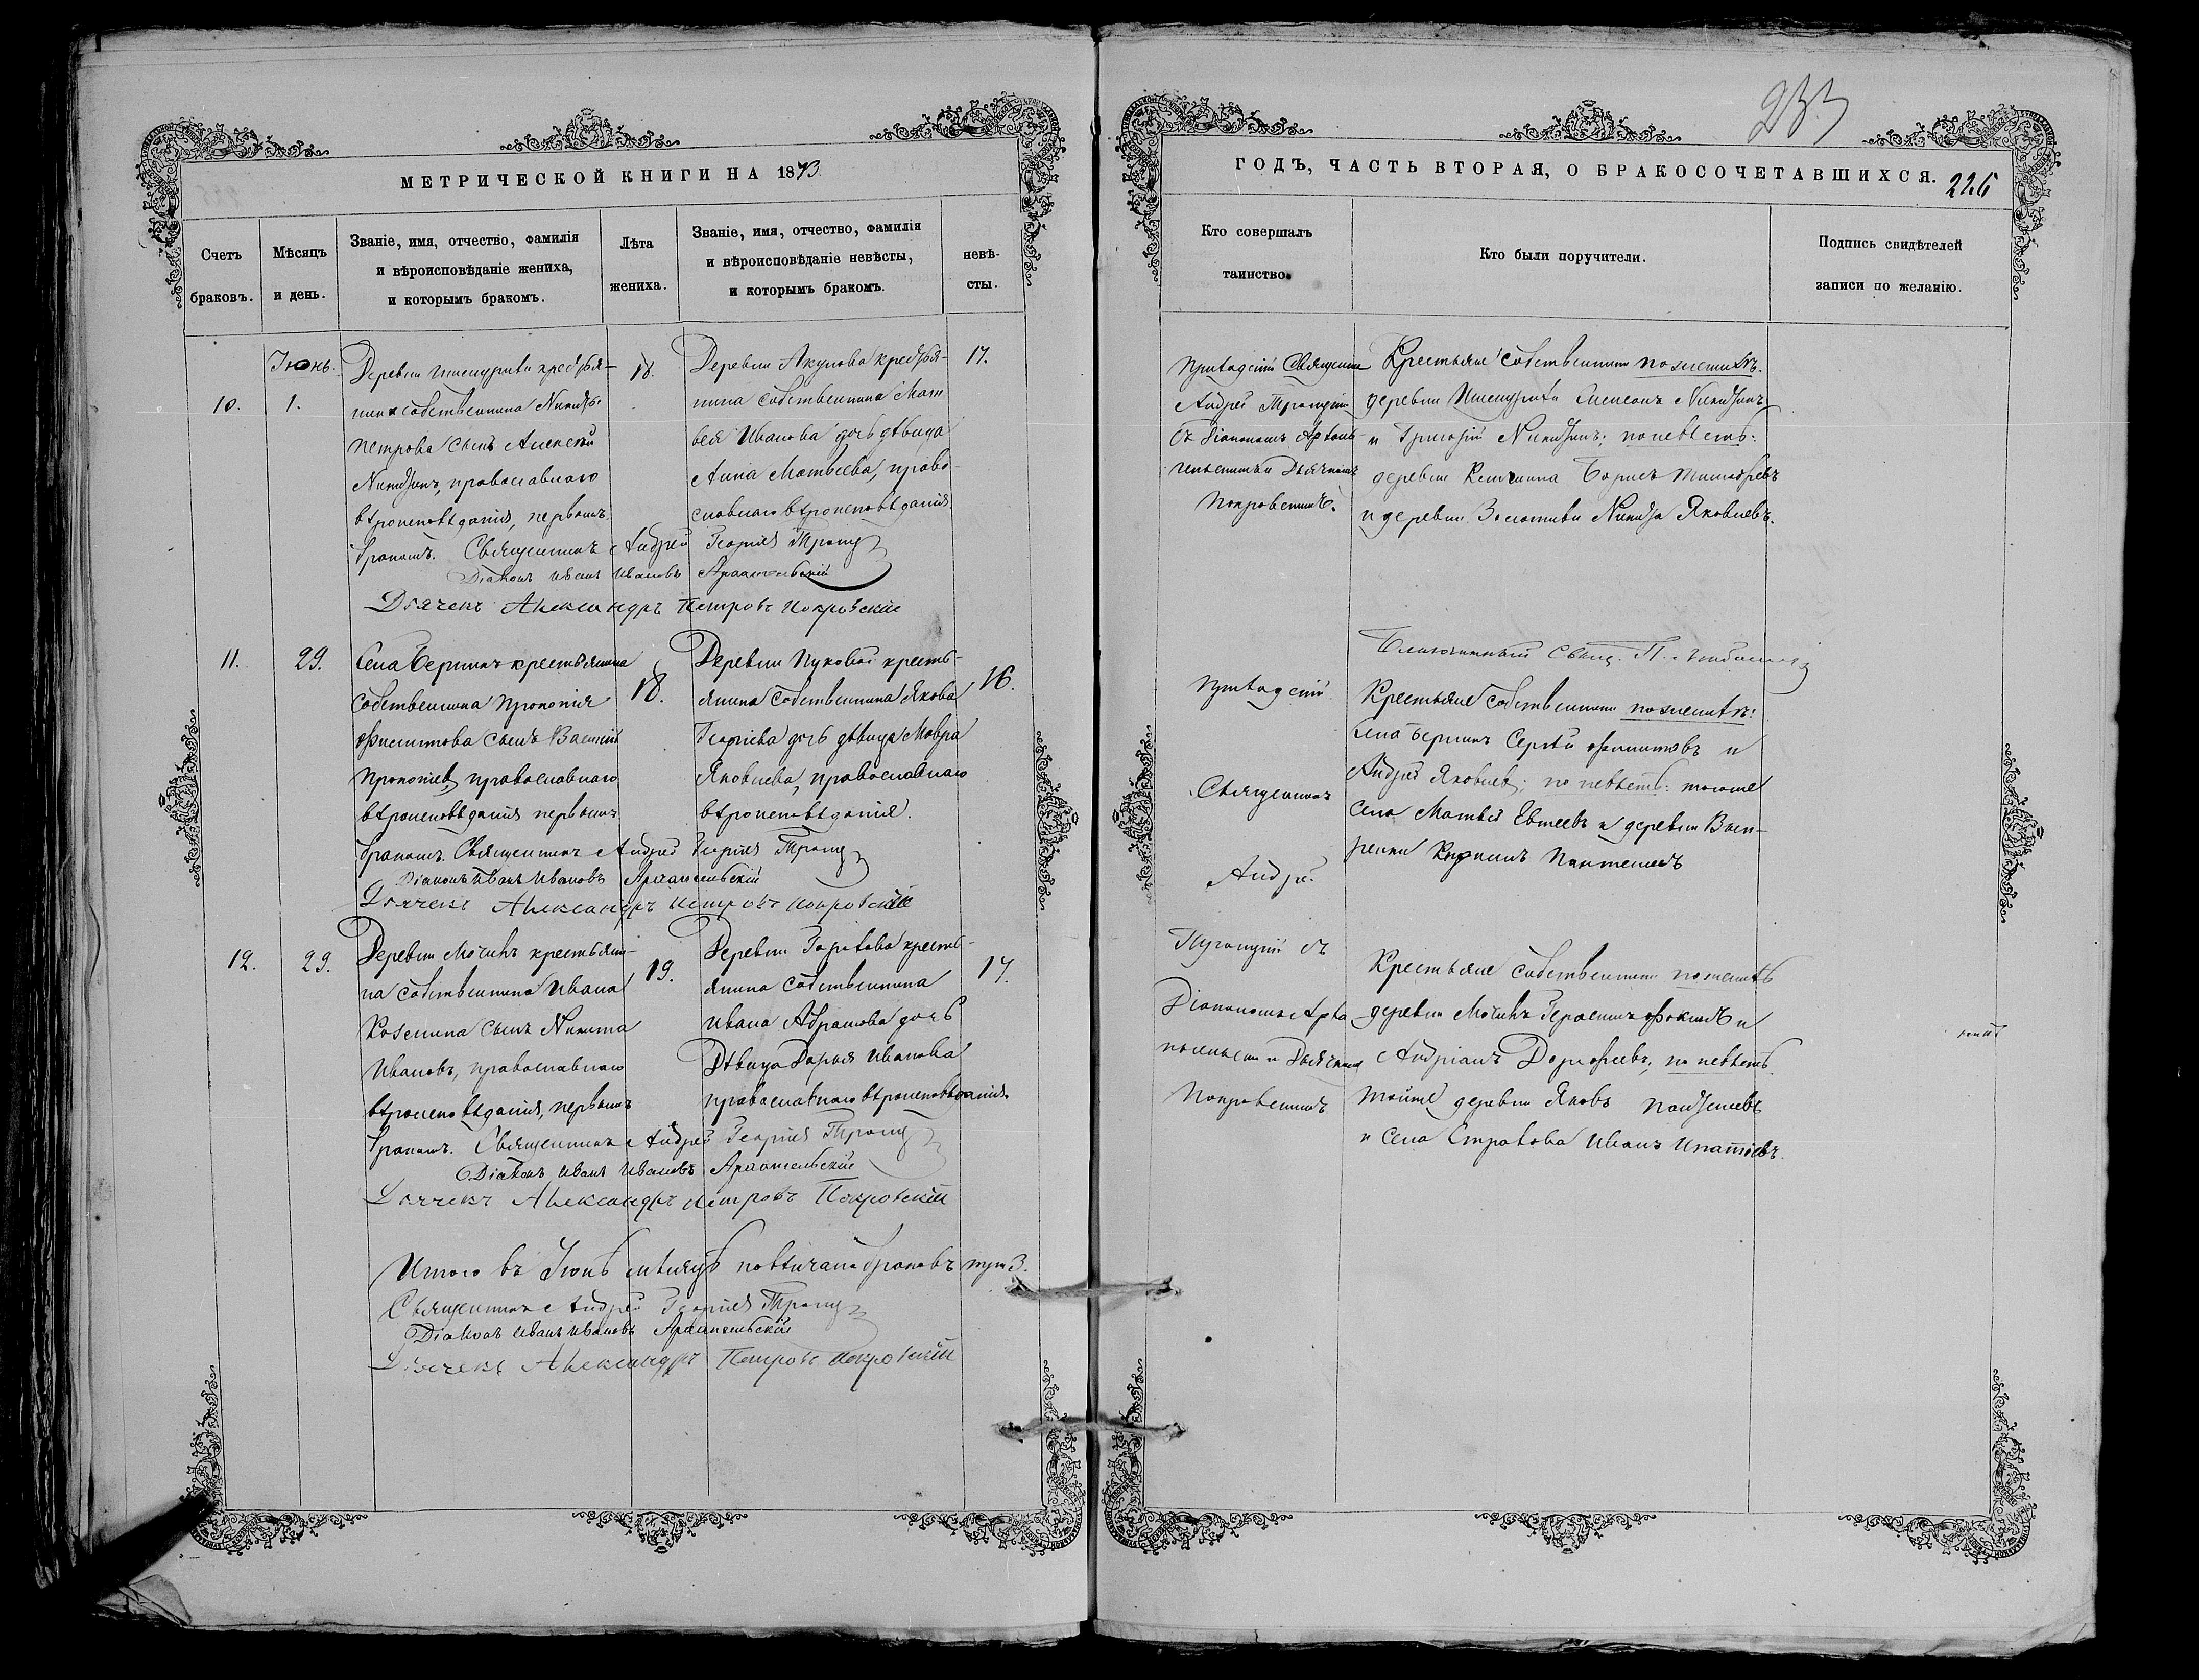 233
МЕТРИЧЕСКОЙ КНИГИ НА 1873
ГОДЪ, ЧАСТЬ ВТОРАЯ, О БРАКОСОЧЕТАВШИХСЯ.
226
Счетъ
браковъ.
Мѣсяцъ
и день.
Званіе, имя, отчество, фамилія
и вѣроисповѣданіе жениха,
и которымъ бракомъ.
Лѣта
жениха.
Званіе, имя, отчество, фамилія
и вѣроисповѣданіе невѣсты,
и которымъ бракомъ.
невѣ-
сты.
Кто совершалъ
таинство.
Кто были поручители.
Подпись свидѣтелей
записи по желанію.
10.
Іюнь.
1.
Деревни крестья-
собственника Никиты
Петрова сынъ Алексѣй
Никитинъ, православнаго
вѣроисповѣданія, первымъ
бракомъ.
18.
Деревни Акулова крестья-
нина собственника Мат
вея Иванова дочь дѣвица
Анна Матвеева, право-
славнаго вѣроисповѣданія.
17.
Священникъ Андрей Георгіев
Діаконъ Иванъ Ивановъ Архангельскій
Дьячекъ Александръ Петровъ Покровскій
Приходскій Священникъ
Андрей
съ діакономъ Архан
гельскимъ и Дьячкомъ
Покровскимъ.
Крестьяне собственники по женихѣ:
деревни Симеонъ Никитинъ
и Григорій Никитинъ; по невѣстѣ:
деревни Борисъ
и деревни Никита Яковлевъ.
11.
29.
Села крестьянина
собственника Прокопія
Филиппова сынъ Василій
Прокопіевъ, православнаго
вѣроисповѣданія первымъ
бракомъ.
18.
Деревни Пуковой кресть-
янина собственника Якова
Георгіева дочь дѣвица Мавра
Яковлева, православнаго
вѣроисповѣданія.
16.
Священникъ Андрей Георгіев
Діаконъ Иванъ Ивановъ Архангельскій
Дьячекъ Александръ Петровъ Покровскій
Благочинный Свящ. П.
Приходскій
Священникъ
Андрей
съ
Діакономъ Арха
и Дьячкомъ
Покровскимъ
Крестьяне собственники по женихѣ:
села Сергѣй Филиповъ и
Андрей Яковлевъ; по невѣстѣ: тогоже
села Матвѣй Евсеевъ и деревни
12.
29.
Деревни крестьяни-
на собственника Ивана
Козмина сынъ Никита
Ивановъ, православнаго
вѣроисповѣданія, первымъ
бракомъ.
19.
Деревни Горохова кресть-
янина собственника
Ивана Абрамова дочь
Дѣвица Дарья Иванова
православнаго вѣроисповѣданія.
17.
Священникъ Андрей Георгіев
Діаконъ Иванъ Ивановъ Архангельскій
Дьячекъ Александръ Петровъ Покровскій
Крестьяне собственники по женихѣ
деревни Герасимъ и
Андріанъ Дорофеевъ; по невѣстѣ
тойже деревни Яковъ
и села Страхова Иванъ Ипатіевъ.
Итого въ Іюнѣ мѣсяцѣ повѣнчано браковъ три 3.
Священникъ Андрей Георгіев
Діаконъ Иванъ Ивановъ Архангельскій
Дьячекъ Александръ Петровъ Покровскій